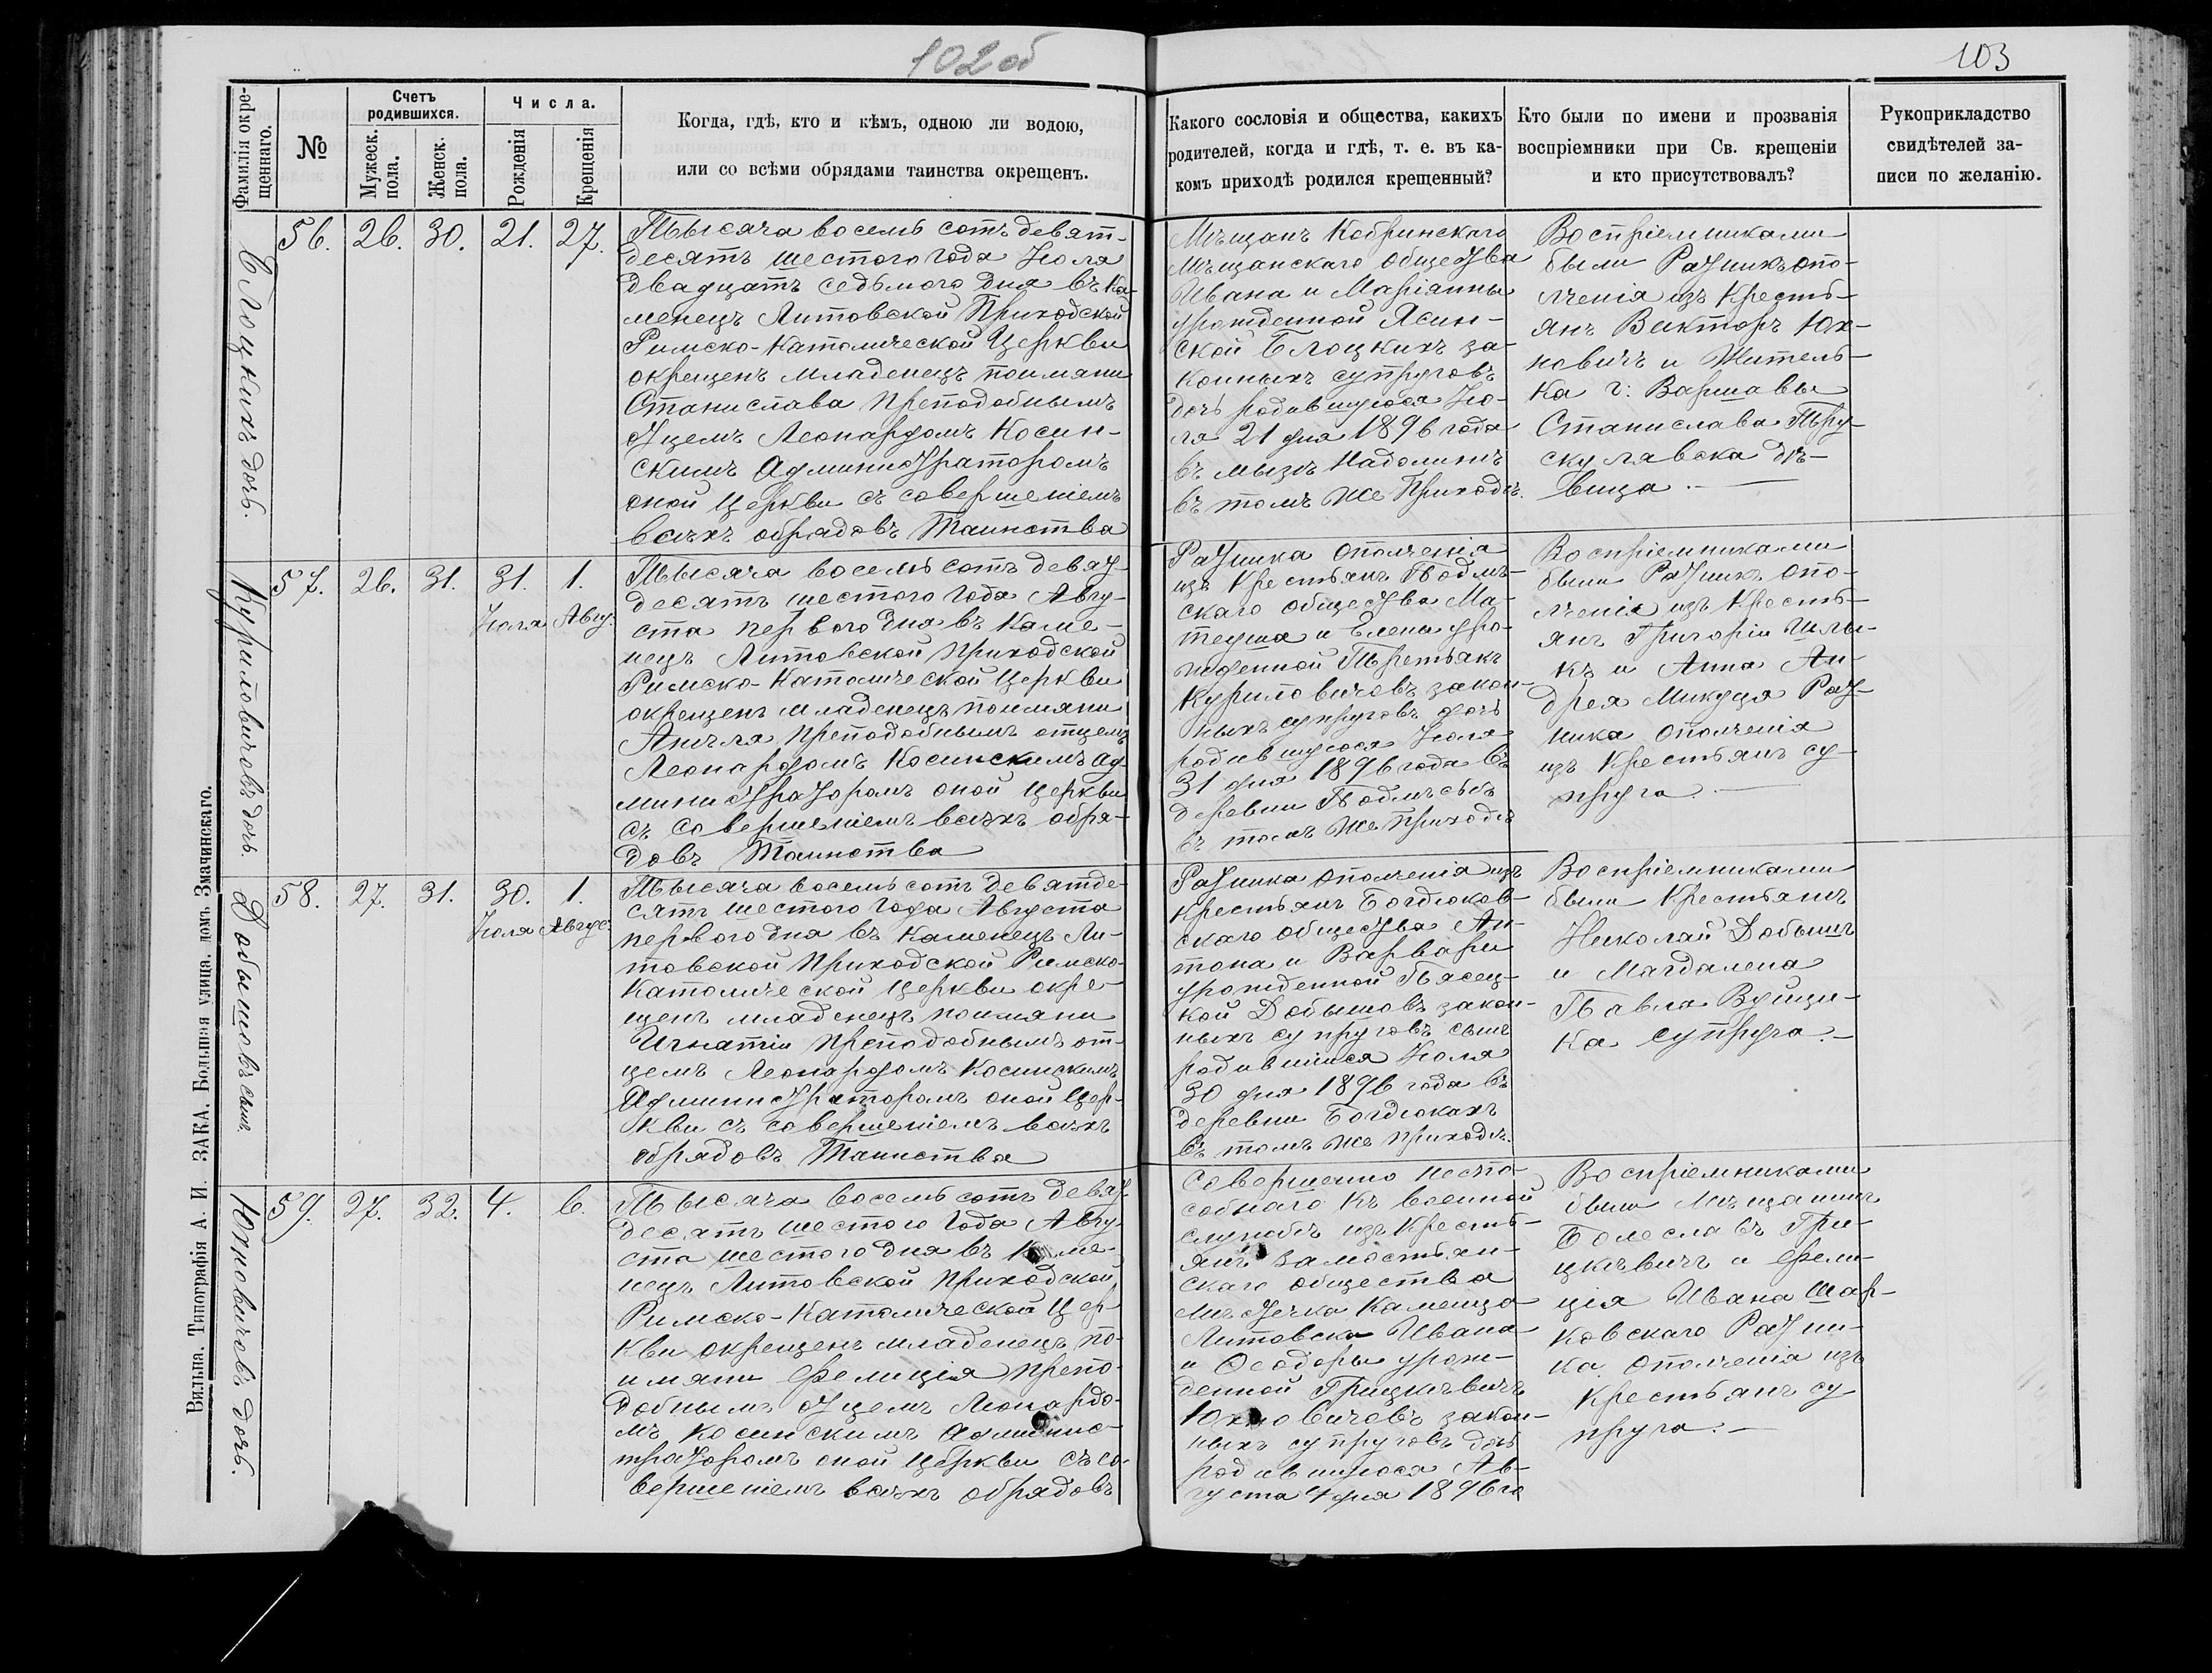 102 об
103
Фамилія окре-
щеннаго.
№
Счетъ
родившихся.
Мужеск.
пола.
Женск.
пола.
Числа.
Рожденія
Крещенія
Когда, гдѣ, кто и кѣмъ, одною ли водою,
или со всѣми обрядами таинства окрещенъ.
Какого сословія и общества, какихъ
родителей, когда и гдѣ, т. е. въ ка-
комъ приходѣ родился крещенный?
Кто были по имени и прозванія
воспріемники при Св. крещеніи
и кто присутствовалъ?
Рукоприкладство
свидѣтелей за-
писи по желанію.
Блоцкихъ дочь.
56. 26. 30. 21. 27.
Тысяча восемь сотъ девят-
десятъ шестого года Іюля
двадцатъ седьмого дня въ Ка-
менецъ Литовской Приходской
Римско-Католической Церкви
окрещенъ младенецъ поимяни
Станислава преподобнымъ
отцемъ Леонардомъ Косин-
скимъ Администраторомъ
оной Церкви съ совершеніемъ
всѣхъ обрядовъ Таинства
Мѣщанъ Кобринскаго
Мѣщанскаго общества
Ивана и Маріянны
урожденной Ясин-
ской Блоцкихъ за-
конныхъ супруговъ
дочь родившуюся Ію-
ля 21 дня 1896 года
въ мызѣ Надолинѣ
въ томъ же Приходѣ.
Воспріемниками
были Ратникъ опо-
лченія изъ Кресть-
янъ Викторъ Юх-
новичъ и Житель-
ка г: Варшавы
Станислава Пру-
скулявска дѣ-
вица.
Куриловичовъ дочь.
57. 26. 31. 31. 1.
Іюля Авгу.
Тысяча восемь сотъ девят-
десятъ шестого года Авгу-
ста перваго дня въ Каме-
нецъ Литовской Приходской
Римско-Католической Церкви
окрещенъ младенецъ поимяни
Анѣля преподобнымъ отцемъ
Леонардомъ Косинскимъ Ад-
министраторомъ оной Церкви
съ совершеніемъ всѣхъ обря-
довъ Таинства
Ратника ополченія
изъ Крестьянъ Подмѣ-
скаго общества Ма-
теуша и Елены уро-
жденной Третьякъ
Куриловичовъ закон-
ныхъ супруговъ дочь
родившуюся Іюля
31 дня 1896 года въ
деревни
въ томъ же Приходѣ
Воспріемниками
были Ратникъ опо-
лченія изъ Кресть-
янъ Григорій
къ и Анна Ан-
дрея Микуця Рат-
ника ополченія
изъ Крестьянъ су-
пруга.
Добышовъ сынъ.
58. 27. 31. 30. 1.
Іюля Авгус.
Тысяча восемь сотъ девятде-
сятъ шестого года Августа
перваго дня въ Каменецъ Ли-
товской Приходской Римско-
Католической Церкви окре-
щенъ младенецъ поимяни
Игнатій преподобнымъ от-
цемъ Леонардомъ Косинскимъ
Администраторомъ оной Цер-
кви съ совершеніемъ всѣхъ
обрядовъ Таинства
Ратника ополченія изъ
Крестьянъ Богдюков-
скаго общества Ан-
тона и Варвары
урожденной Пясец-
кой Добышовъ закон-
ныхъ супруговъ сынъ
родившійся Іюля
30 дня 1896 года въ
деревни Богдюкахъ
въ томъ же приходѣ.
Воспріемниками
были Крестьянъ
Николай Добышъ
и Магдалена
Павла Вуйци-
ка супруга.
Юхновичовъ дочь.
59. 27. 32. 4. 6.
Тысяча восемь сотъ девят-
десятъ шестого года Авгу-
ста шестого дня въ Каме-
нецъ Литовской Приходской
Римско-Католической Цер-
кви окрещенъ младенецъ по-
имяни Фелиція препо-
добнымъ отцемъ Леонардо-
мъ Косинскимъ Админис-
траторомъ оной Церкви съ со-
вершеніемъ всѣхъ обрядовъ
Совершенно неспо-
собнаго къ военной
службѣ изъ Кресть-
янъ Замостьян-
скаго общества
мѣстечка Каменца
Литовска Ивана
и Ѳеодоры урож-
денной Грицкѣвичъ
Юхновичовъ закон-
ныхъ супруговъ дочь
родившуюся Ав-
густа 4 дня 1896 го
Воспріемниками
были Мѣщанинъ
Болеславъ Гри-
цкѣвичъ и Фели-
ція Ивана Шар-
ковскаго Ратни-
ка ополченія изъ
Крестьянъ су-
пруга.
Вильна. Типографія А. И. ЗАКА. Большая улица. домъ Змачинскаго.